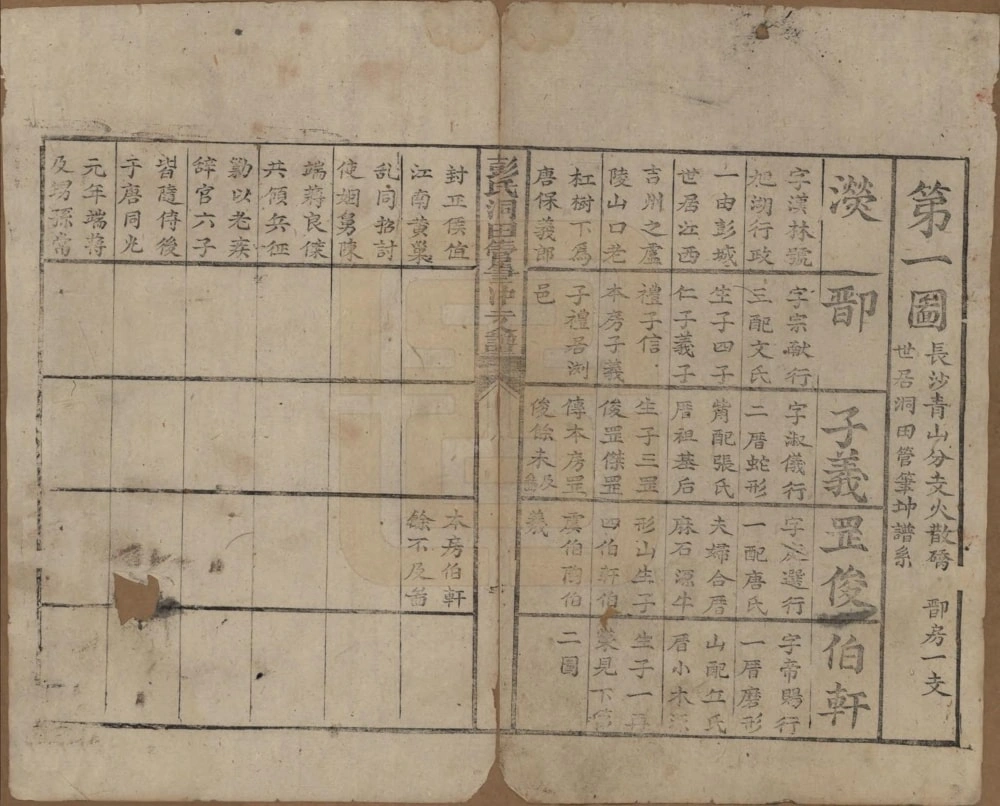 第一圖
長沙青山分支火散磱
世居洞田管筆坤譜系
鄑房一支
㵪
字漢林號
旭湖行政
一由彭城
世居江西
吉州之盧
陵山口老
杠樹下為
唐保義郎
封正侯值
江南黃巢
亂同招討
使姻舅陳
端蔣良傑
共領兵征
勦以老疾
辭官六子
皆隨侍後
于唐同光
元年端蔣
及男孫當
鄑
字宗猷行
三配文氏
生子四子
仁子義子
禮子信
本房子義
子禮居浏
邑
子義
字淑儀行
二厝蛇形
萳配張氏
厝祖基后
生子三罡
俊罡傑罡
傳本房罡
俊餘未及
義
罡俊
字廷選行
一配唐氏
夫婦合厝
麻石源牛
形山生子
四伯軒伯
虞伯陶伯
義
本房伯軒
餘不及畨
伯軒
字帝賜行
一厝磨形
山配江氏
厝小木
生子一
見下
二圖
彭氏洞田管筆沖支譜